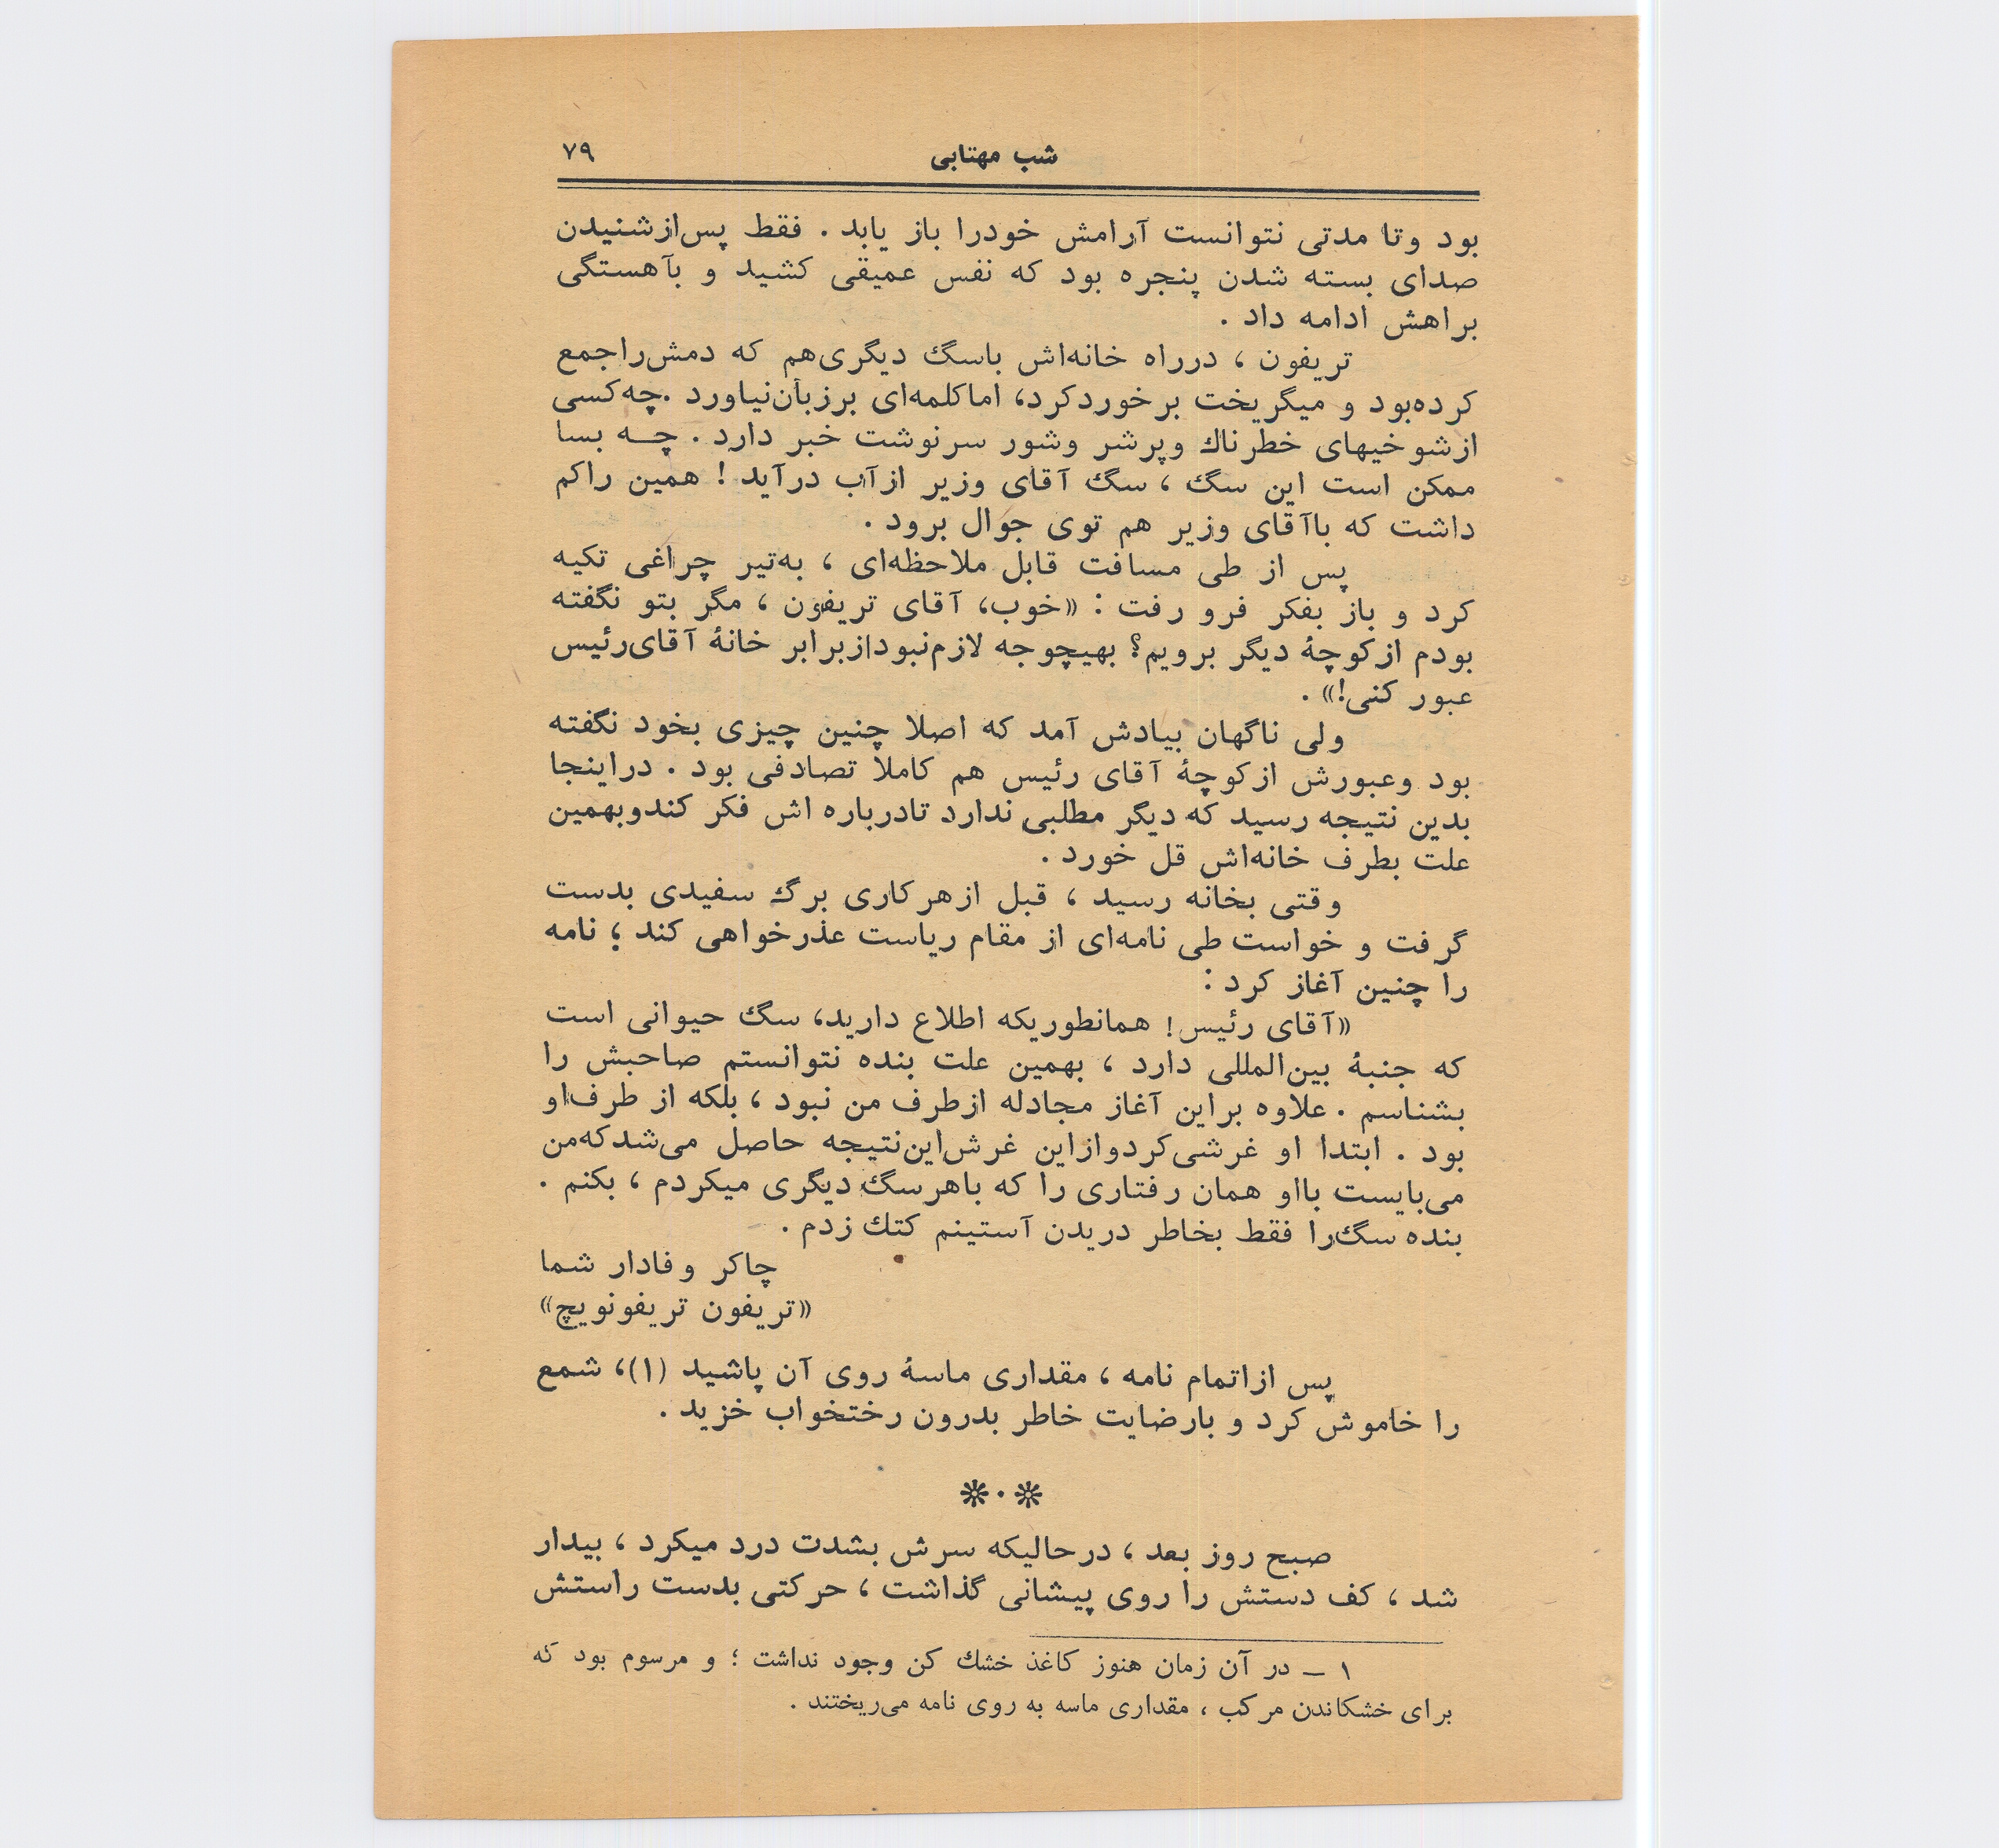 شب مهتابی ۷۹
بود وتا مدتی نتوانست آرامش خودرا باز یابد . فقط پس‌ازشنیدن
صدای بسته شدن پنجره بود که نفس عمیقی کشید و بآهستگی
براهش ادامه داد .
تریفون ، درراه خانه‌اش باسگ دیگری‌هم که دمش‌راجمع
کرده‌بود و میگریخت برخوردکرد، اماکلمه‌ای برزبان‌نیاورد .چه‌کسی
ازشوخیهای خطرناك وپرشر وشور سرنوشت خبر دارد . چـه بسا
ممکن است این سگ ، سگ آقای وزیر ازآب درآید ! همین راکم
داشت که باآقای وزیر هم توی جوال برود .
پس از طی مسافت قابل ملاحظه‌ای ، به‌تیر چراغی تکیه
کرد و باز بفکر فرو رفت : «خوب، آقای تریفون ، مگر بتو نگفته
بودم ازکوچهٔ دیگر برویم؟ بهیچوجه لازم‌نبودازبرابر خانهٔ آقای‌رئیس
عبور کنی!» .
ولی ناگهان بیادش آمد که اصلا چنین چیزی بخود نگفته
بود وعبورش ازکوچهٔ آقای رئیس هم کاملا تصادفی بود . دراینجا
بدین نتیجه رسید که دیگر مطلبی ندارد تادرباره اش فکر کندوبهمین
علت بطرف خانه‌اش قل خورد .
وقتی بخانه رسید ، قبل ازهرکاری برگ سفیدی بدست
گرفت و خواست طی نامه‌ای از مقام ریاست عذرخواهی کند ؛ نامه
را چنین آغاز کرد :
«آقای رئیس! همانطوریکه اطلاع دارید، سگ حیوانی است
که جنبهٔ بین‌المللی دارد ، بهمین علت بنده نتوانستم صاحبش را
بشناسم . علاوه براین آغاز مجادله ازطرف من نبود ، بلکه از طرف‌او
بود . ابتدا او غرشی‌کردوازاین غرش‌این‌نتیجه حاصل می‌شدکه‌من
می‌بایست بااو همان رفتاری را که باهرسگ دیگری میکردم ، بکنم .
بنده سگ‌را فقط بخاطر دریدن آستینم کتك زدم .
چاکر وفادار شما
«تریفون تریفونویچ»
پس ازاتمام نامه ، مقداری ماسهٔ روی آن پاشید (۱)، شمع
را خاموش کرد و بارضایت خاطر بدرون رختخواب خزید .
❊ · ❊
صبح روز بعد ، درحالیکه سرش بشدت درد میکرد ، بیدار
شد ، کف دستش را روی پیشانی گذاشت ، حرکتی بدست راستش
۱ – در آن زمان هنوز کاغذ خشك کن وجود نداشت ؛ و مرسوم بود که
برای خشکاندن مرکب ، مقداری ماسه به روی نامه می‌ریختند .